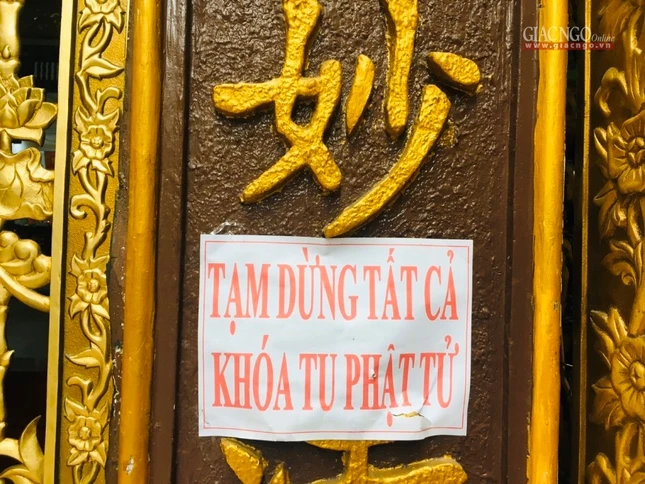 GIACNGO Online
www.giacngo.vn
妙
TẠM DỪNG TẤT CẢ
KHÓA TU PHẬT TỬ